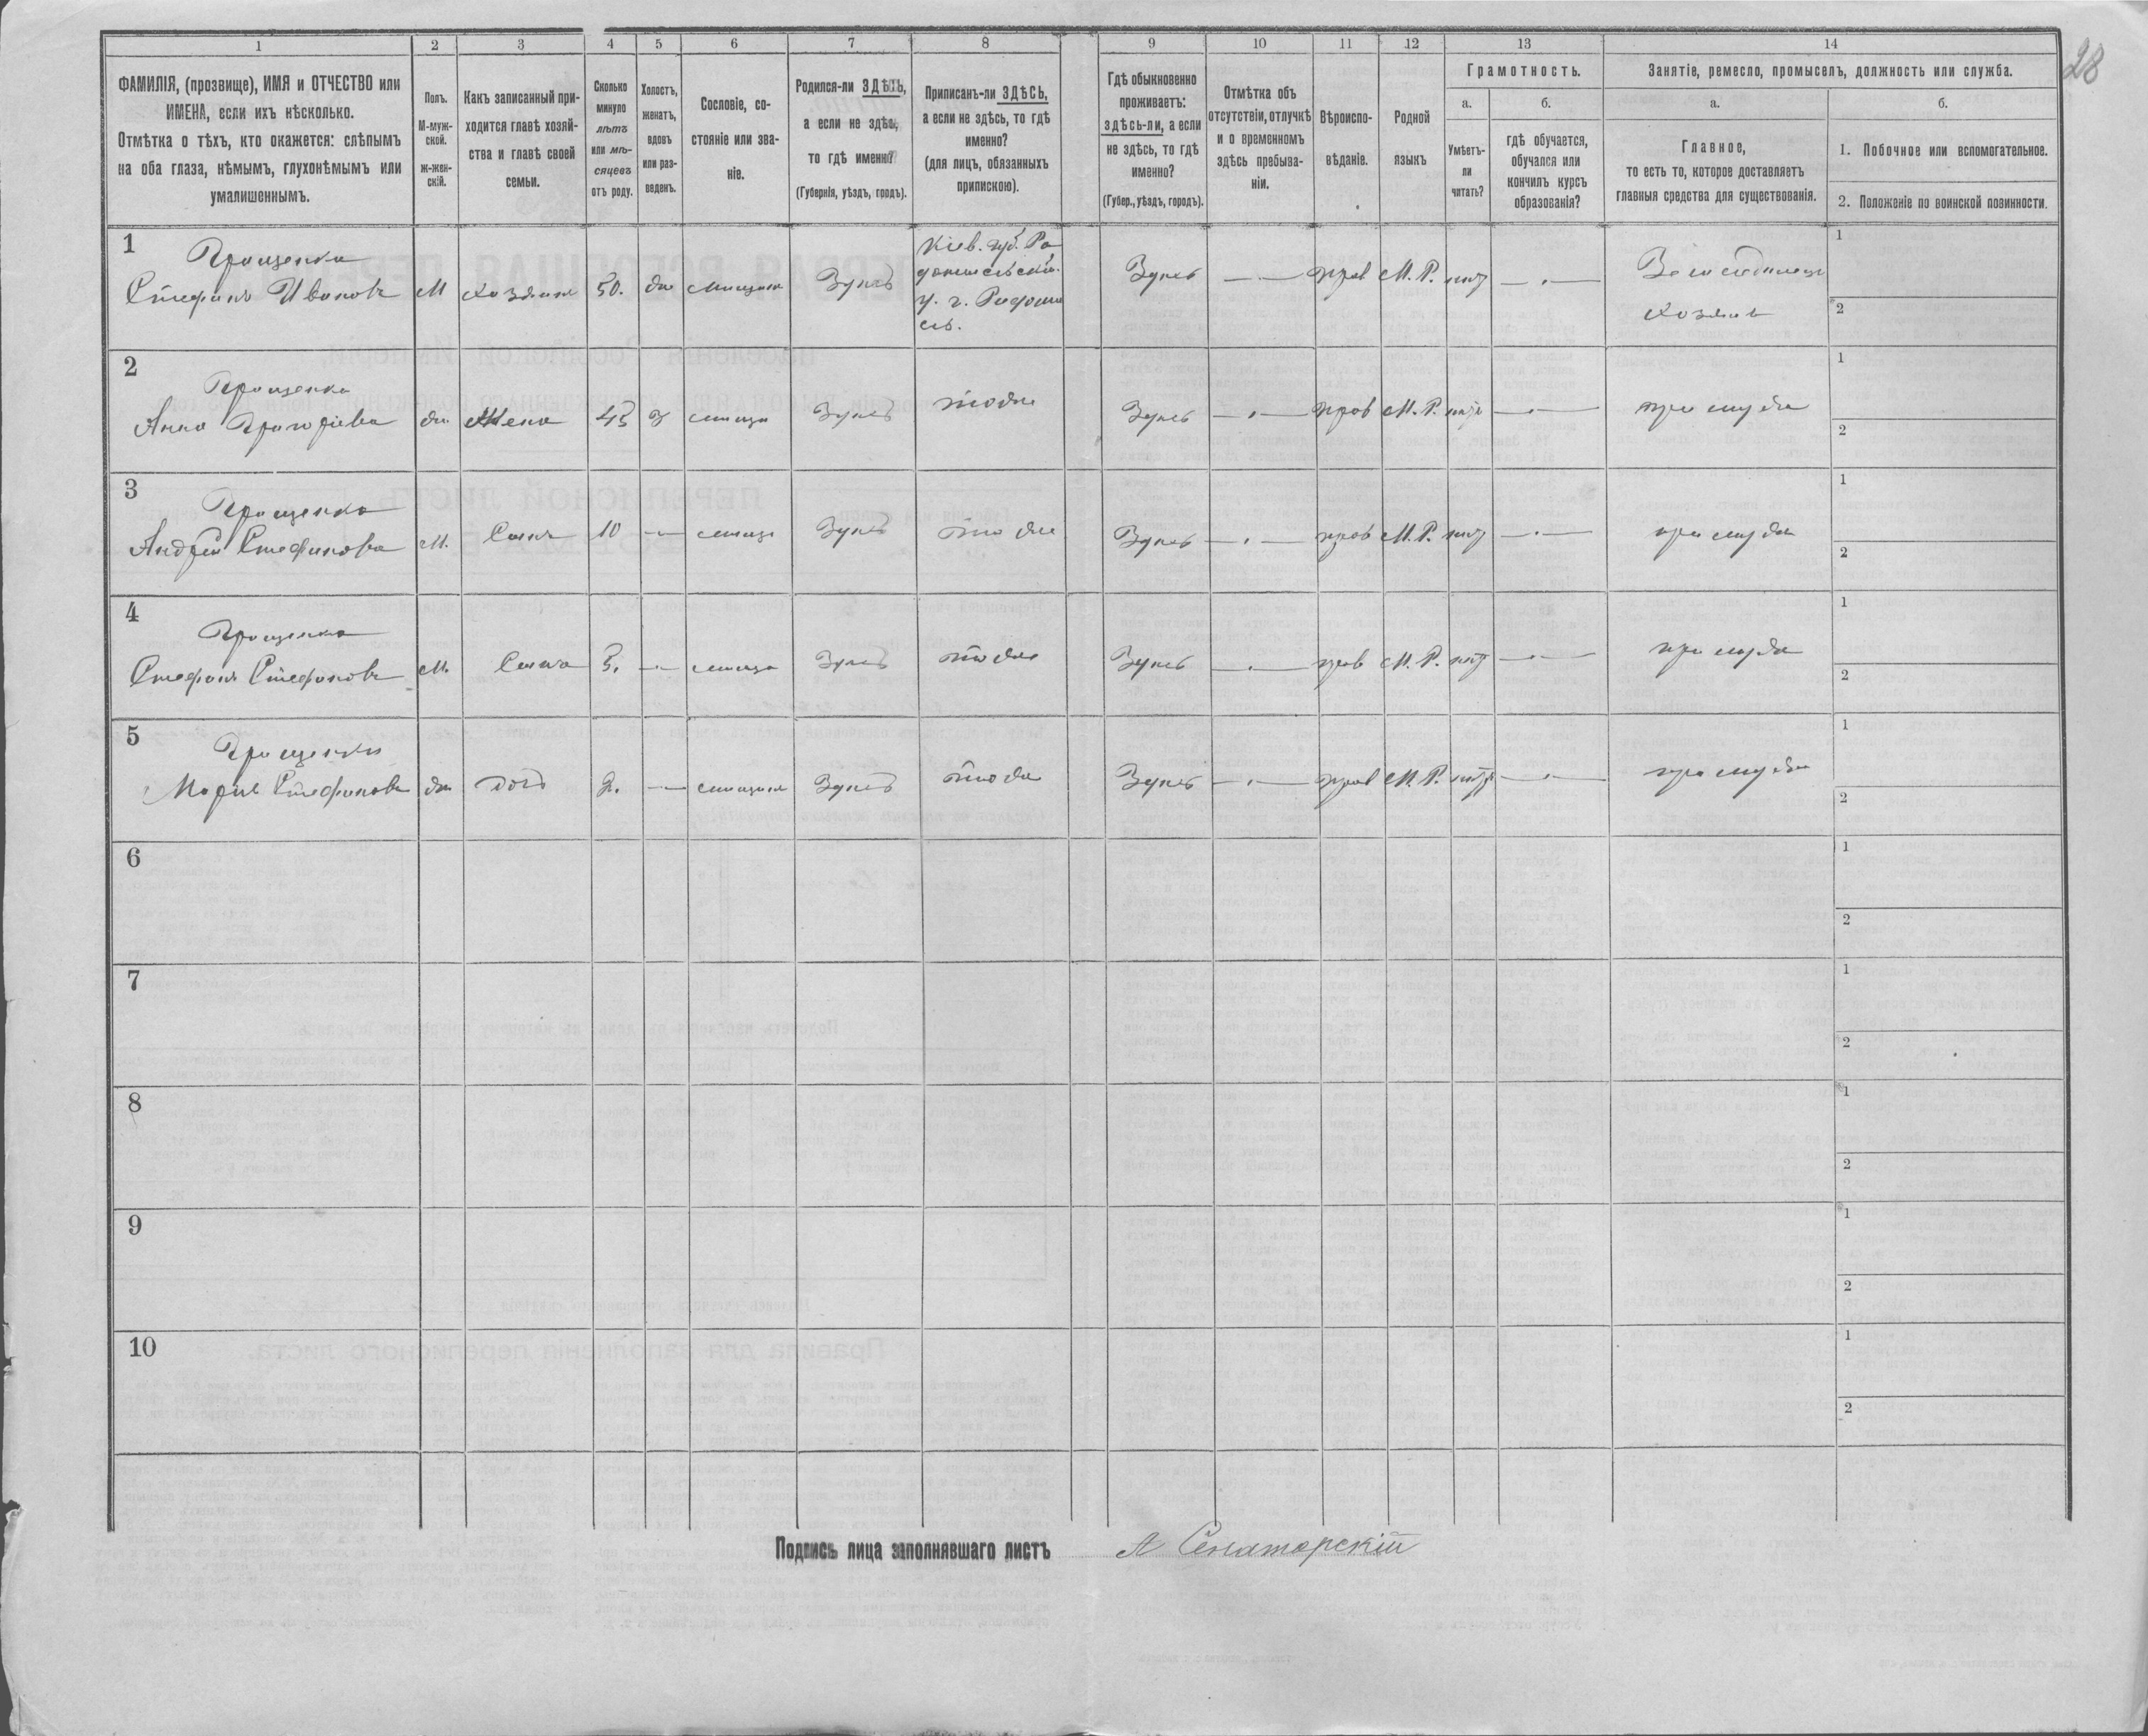 1 2 3 4 5 6 7 8 9 10 11 12 13 14
28
ФАМИЛІЯ, (прозвище), ИМЯ и ОТЧЕСТВО или
ИМЕНА, если ихъ нѣсколько.
Отмѣтка о тѣхъ, кто окажется: слѣпымъ
на оба глаза, нѣмымъ, глухонѣмымъ или
умалишеннымъ.
Полъ.
М-муж-
ской.
ж-жен-
скій.
Какъ записанный при-
ходится главѣ хозяй-
ства и главѣ своей
семьи.
Сколько
минуло
лѣтъ
или мѣ-
сяцевъ
отъ роду.
Холостъ,
женатъ,
вдовъ
или раз-
веденъ.
Сословіе, со-
стояніе или зва-
ніе.
Родился-ли ЗДѢСЬ,
а если не здѣсь,
то гдѣ именно?
(Губернія, уѣздъ, городъ).
Приписанъ-ли ЗДѢСЬ,
а если не здѣсь, то гдѣ
именно?
(для лицъ, обязанныхъ
припискою).
Гдѣ обыкновенно
проживаетъ:
здѣсь-ли, а если
не здѣсь, то гдѣ
именно?
(Губер., уѣздъ, городъ).
Отмѣтка объ
отсутствіи, отлучкѣ
и о временномъ
здѣсь пребыва-
ніи.
Вѣроиспо-
вѣданіе.
Родной
языкъ
Грамотность.
а.
Умѣетъ-
ли
читать?
б.
гдѣ обучается,
обучался или
кончилъ курсъ
образованія?
Занятіе, ремесло, промыселъ, должность или служба.
а.
Главное,
то есть то, которое доставляетъ
главныя средства для существованія.
б.
1. Побочное или вспомогательное.
2. Положеніе по воинской повинности.
1
Прищенко
Стефанъ Ивановъ М хозяинъ 50. жи мищан Здѣсь
Кіев. губ. Ра
домысльскій.
у. г. Радомы
сль.
Здѣсь — прав М. Р. нѣт —
хозяин
1
2
2
Прищенко
Анна Григорієва жи Жена 45 з мища Здѣсь тоже Здѣсь — прав М. Р. нѣтъ — при мужѣ
1
2
3
Прищенко
Андрѣй Стефанова М. Сынъ 10 — мища Здѣсь тоже Здѣсь — прав М. Р. нѣт — при мужѣ
1
2
4
Прищенко
Стефанъ Стефановъ М. Сынъ 5. — мища Здѣсь тоже Здѣсь — прав М. Р. нѣт — при мужѣ
1
2
5
Прищенко
Марія Стефанова жи 2. — мищан Здѣсь тоже Здѣсь — прав М. Р. нѣтъ — при мужѣ
1
2
6
1
2
7
1
2
8
1
2
9
1
2
10
1
2
Подпись лица заполнявшаго листъ А Сенаторскій